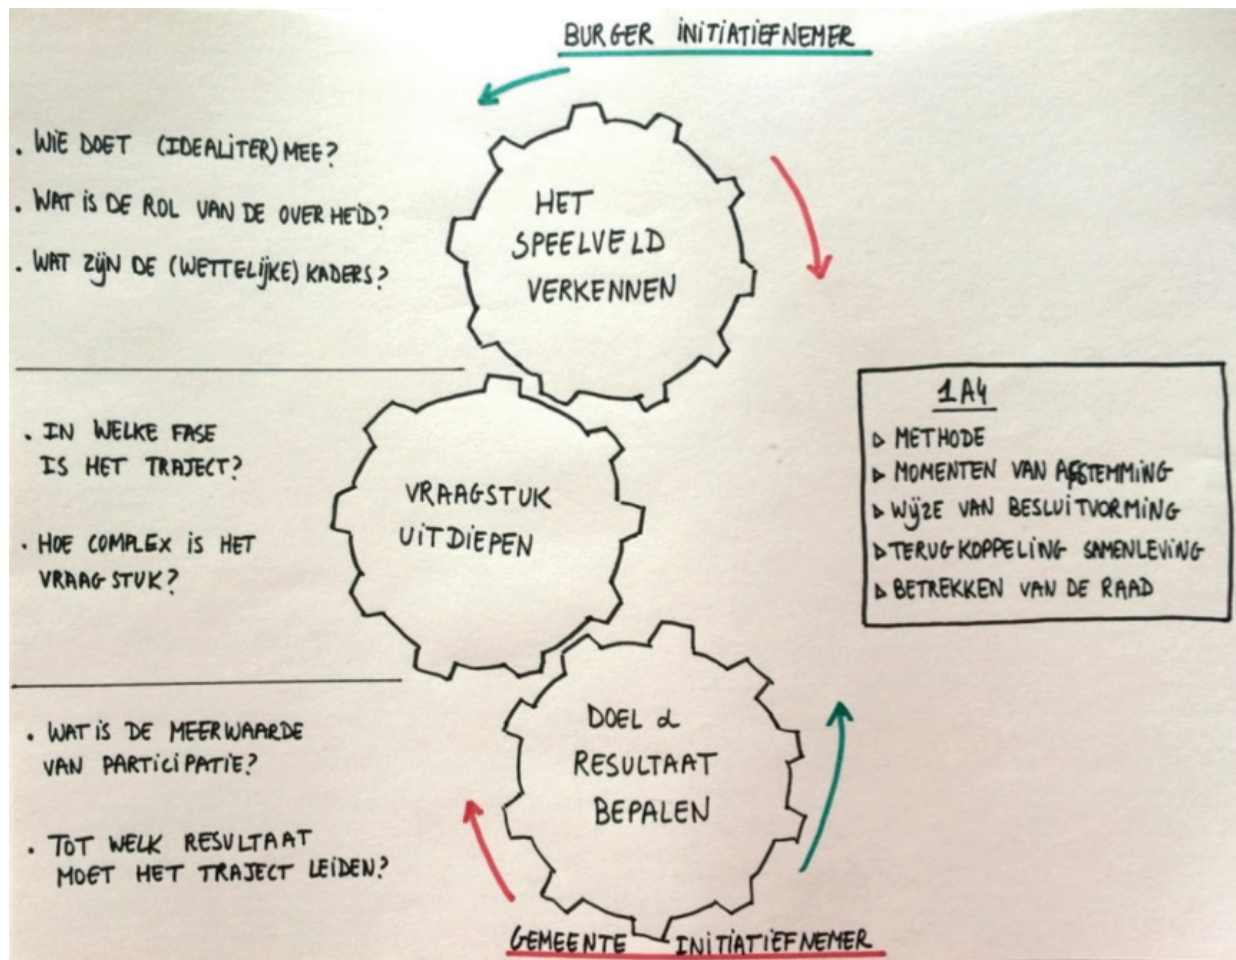 BURGER INITIATIEFNEMER
. WIE DOET (IDEALITER) MEE?
. WAT IS DE ROL VAN DE OVERHEID?
. WAT ZIJN DE (WETTELIJKE) KADERS?
HET
SPEELVELD
VERKENNEN
. IN WELKE FASE
IS HET TRAJECT?
. HOE COMPLEX IS HET
VRAAGSTUK?
VRAAGSTUK
UITDIEPEN
1A4
▹ METHODE
▹ MOMENTEN VAN AFSTEMMING
▹ WIJZE VAN BESLUITVORMING
▹ TERUGKOPPELING SAMENLEVING
▹ BETREKKEN VAN DE RAAD
. WAT IS DE MEERWAARDE
VAN PARTICIPATIE?
. TOT WELK RESULTAAT
MOET HET TRAJECT LEIDEN?
DOEL &
RESULTAAT
BEPALEN
GEMEENTE INITIATIEFNEMER